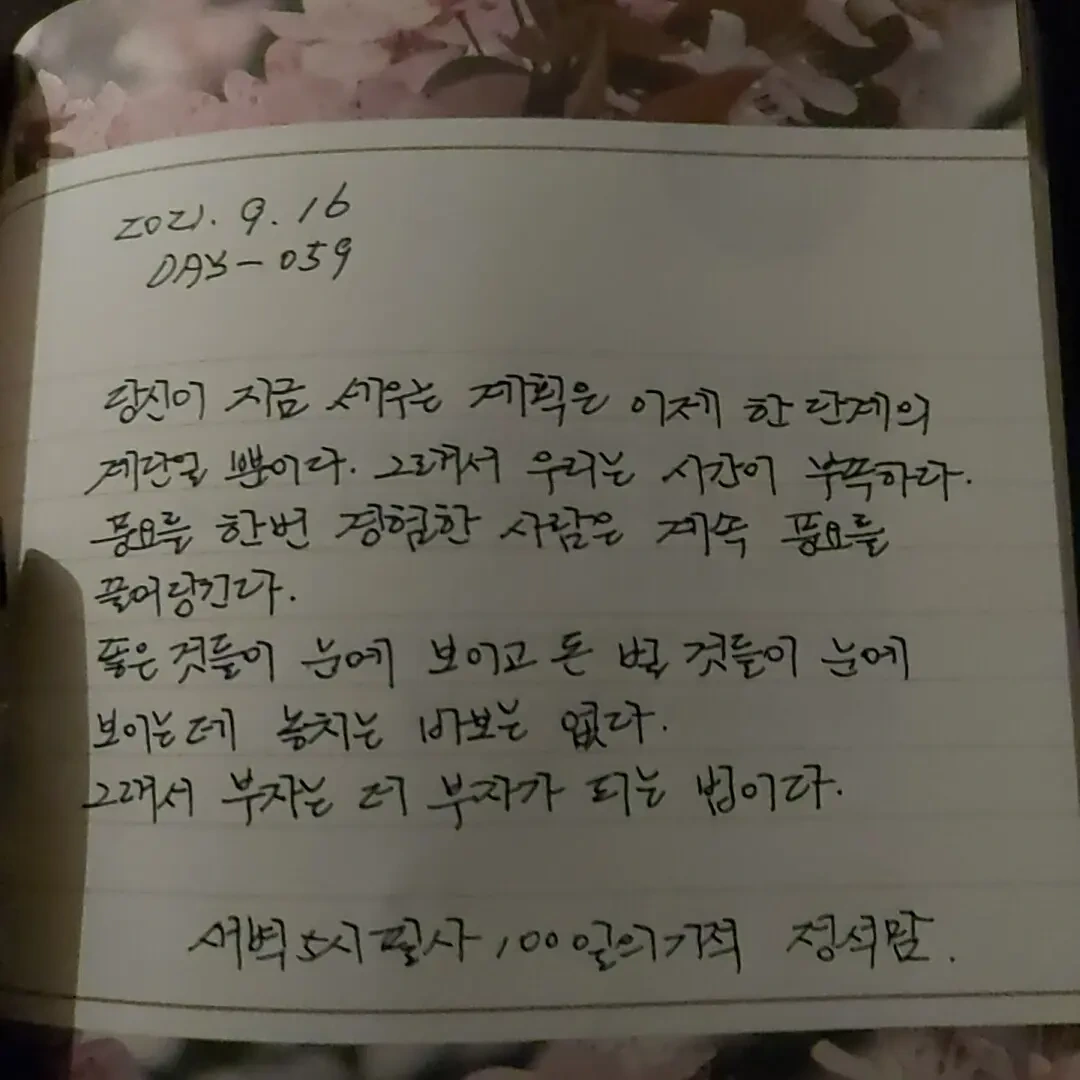 2021. 9. 16
DAY - 059
당신이 지금 세우는 계획은 이제 한 단계의
계단일 뿐이다. 그래서 우리는 시간이 부족하다.
풍요를 한번 경험한 사람은 계속 풍요를
끌어당긴다.
좋은 것들이 눈에 보이고 돈 벌 것들이 눈에
보이는데 놓치는 바보는 없다.
그래서 부자는 더 부자가 되는 법이다.
새벽5시필사 100일의기적 정석맘.